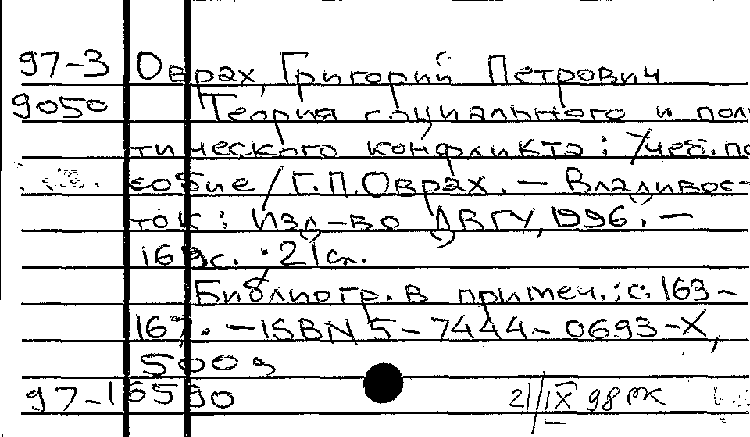 97-3 Оврах, Григорий Петрович
9050 Теория социального и поли
тического конфликта: Учеб. по
собие / Г.П.Оврах. — Владивос-
ток: Изд-во ДВГУ, 1996. —
169с. 21 см.
Библиогр. в примеч.: с. 163-
167. — ISBN 5-7444-0693-X,
500 э
97-16590 21/IX 98